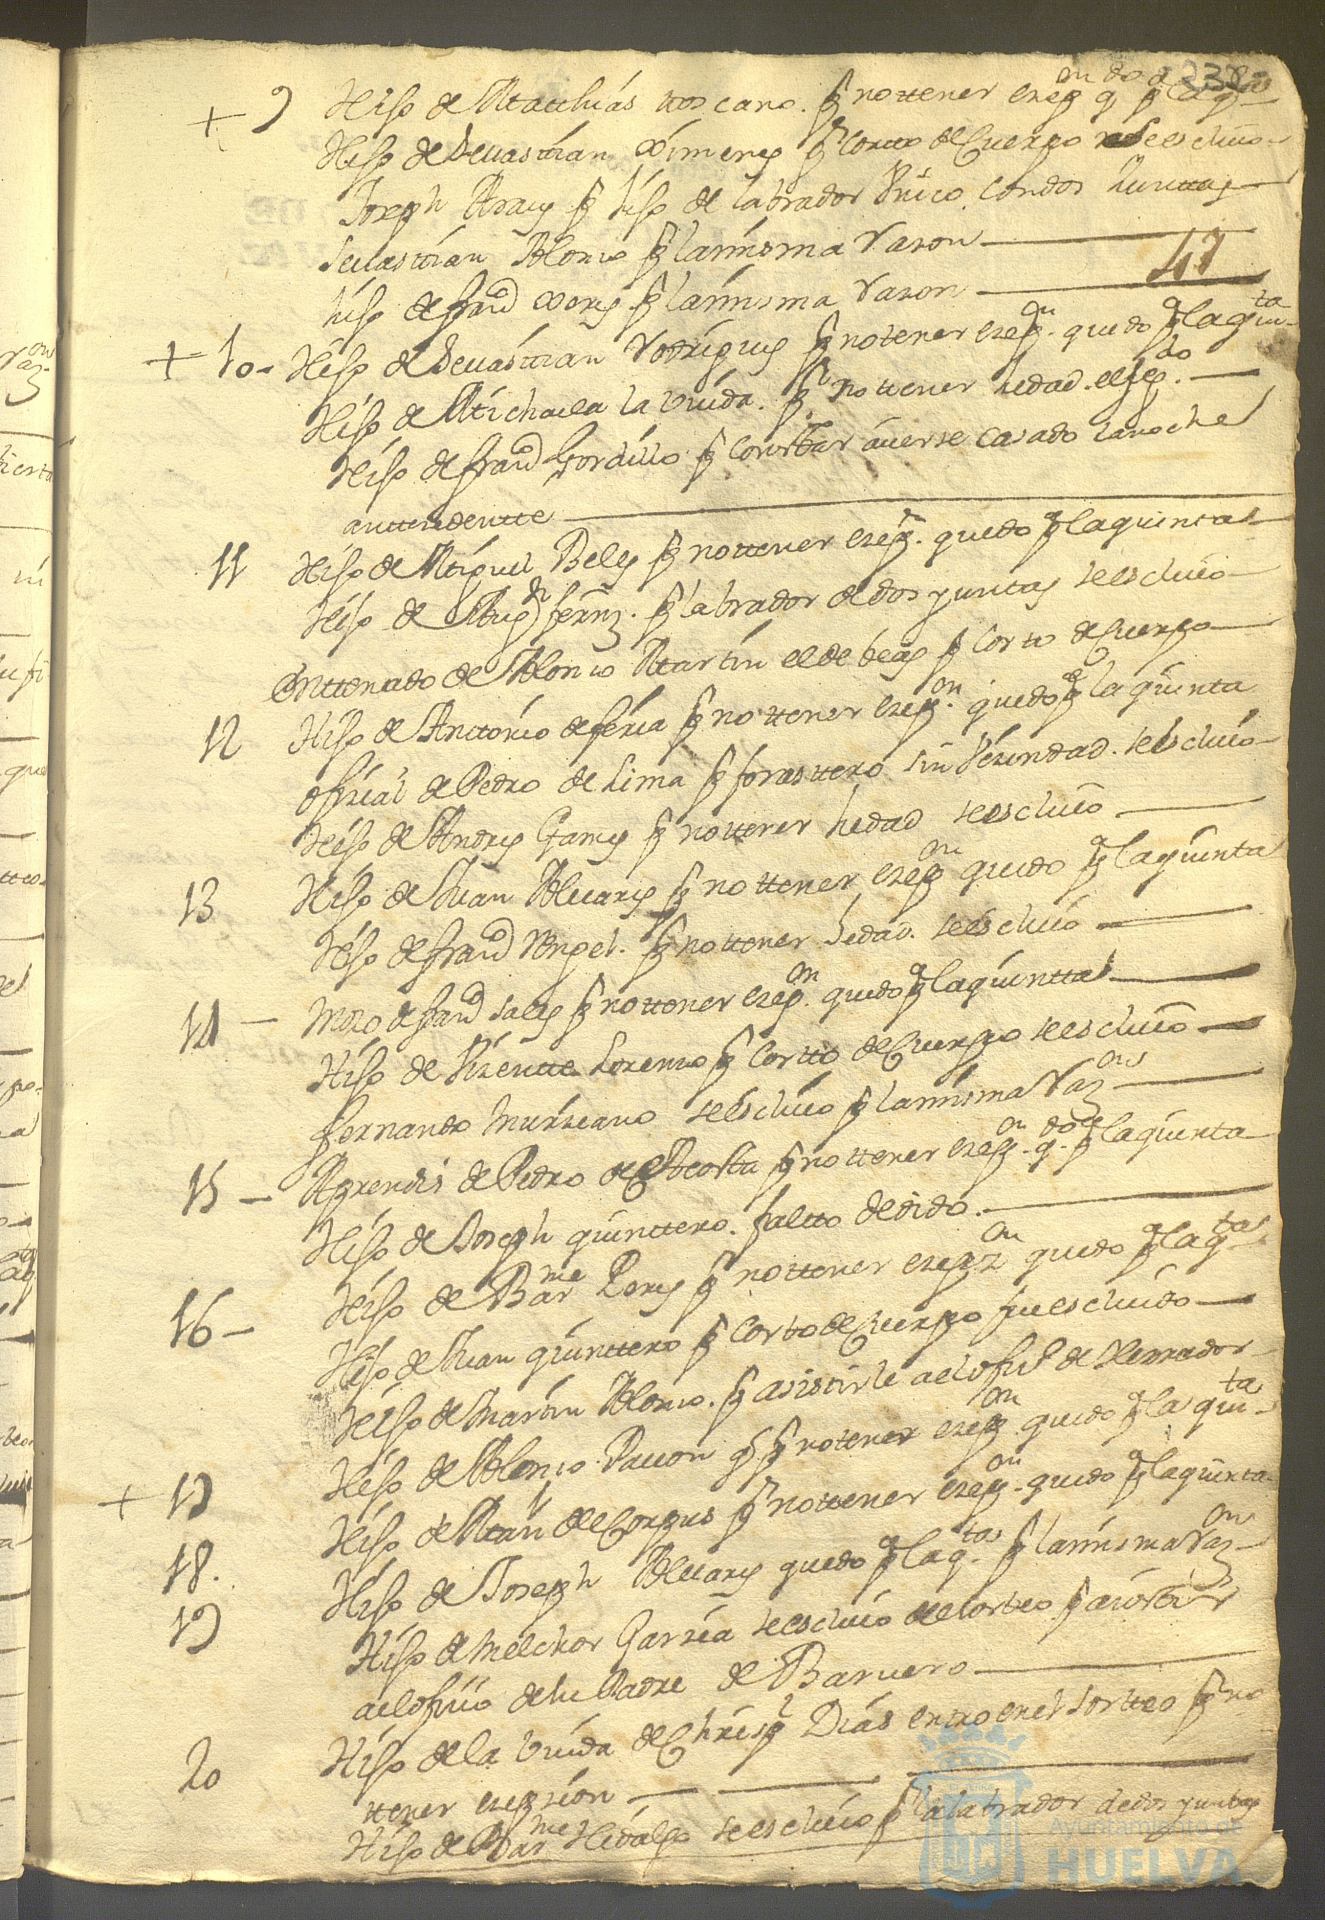 238
+ 9 Hijo de Matthias ttoscano. p.r no ttener exep.on q.do p.a la q.ta
Hijo de Sevastian Ximenes p.r Corto de Cuerpo se escluio
Joseph Arais p.r hijo de labrador Unico con dos Junttas
Sevastian Alonso p.r la misma Rason
47
hijo de fran.co p.r la misma Rason
+ 10 - Hijo de Sevastian Rodrigues p.r no tener exep.on quedo p.a la quin.ta
Hijo de Michaela la Viuda. p.r no ttener hedad. escluido
Hijo de fran.co Gordillo p.r Constar averse Casado la noche
anttesedentte
11 Hijo de Miguel Beles p.r no ttener exep.n quedo p.a la quinta
Hijo de fern.z p.r labrador de dos yuntas se escluio
Enttenado de Alonso Martin el de beas p.r Corto de Cuerpo
12 Hijo de Antonio de feria p.r no ttener exep.on quedo p.a la quinta
Ofisial de Pedro de Lima p.r forasttero sin Vesindad. se escluio
Hijo de Andres Garces p.r no ttener hedad se escluio
13 Hijo de Juan Alvares p.r no ttener exep.on quedo p.a la quinta
Hijo de fran.co Angel. p.r no ttener hedad. se escluio
14 - Moso de fran.co Sales p.r no ttener exep.on quedo p.a la quintta
Hijo de Visentte Lorenso p.r Cortto de Cuerpo se escluio
fernando Mursiano se escluio p.r la misma Raz.on
15 - Aprendis de Pedro de Acosta p.r no ttener exep.on q.do p.a la quinta
Hijo de Joseph quinttero. faltto de dido.
16 - Hijo de Bar.me Peres p.r no ttener exep.on quedo p.a la q.ta
Hijo de Juan quinttero p.r Corto de Cuerpo fue escluido
Hijo de Martin Alonso. p.r asistirle a el ofis.o de Herrador
+ 17 Hijo de Alonso Pavon q. p.r no tener exep.on quedo p.a la quin.ta
18. Hijo de Corpus p.r no ttener exep.on quedo p.a la quinta
19 Hijo de Joseph Alvares quedo p.a la q.ta p.r la misma Raz.on
Hijo de Melchor Garsia se escluio de el sorteo p.r asistir
a el ofisio de su Padre de Barvero
20 Hijo de la Viuda de Chris.l Dias entro en el Sortteo p.r no
ttener exepsion
Hijo de Bar.me Hidalgo se escluio p.r labrador de dos yuntas
Ayuntamiento de
HUELVA